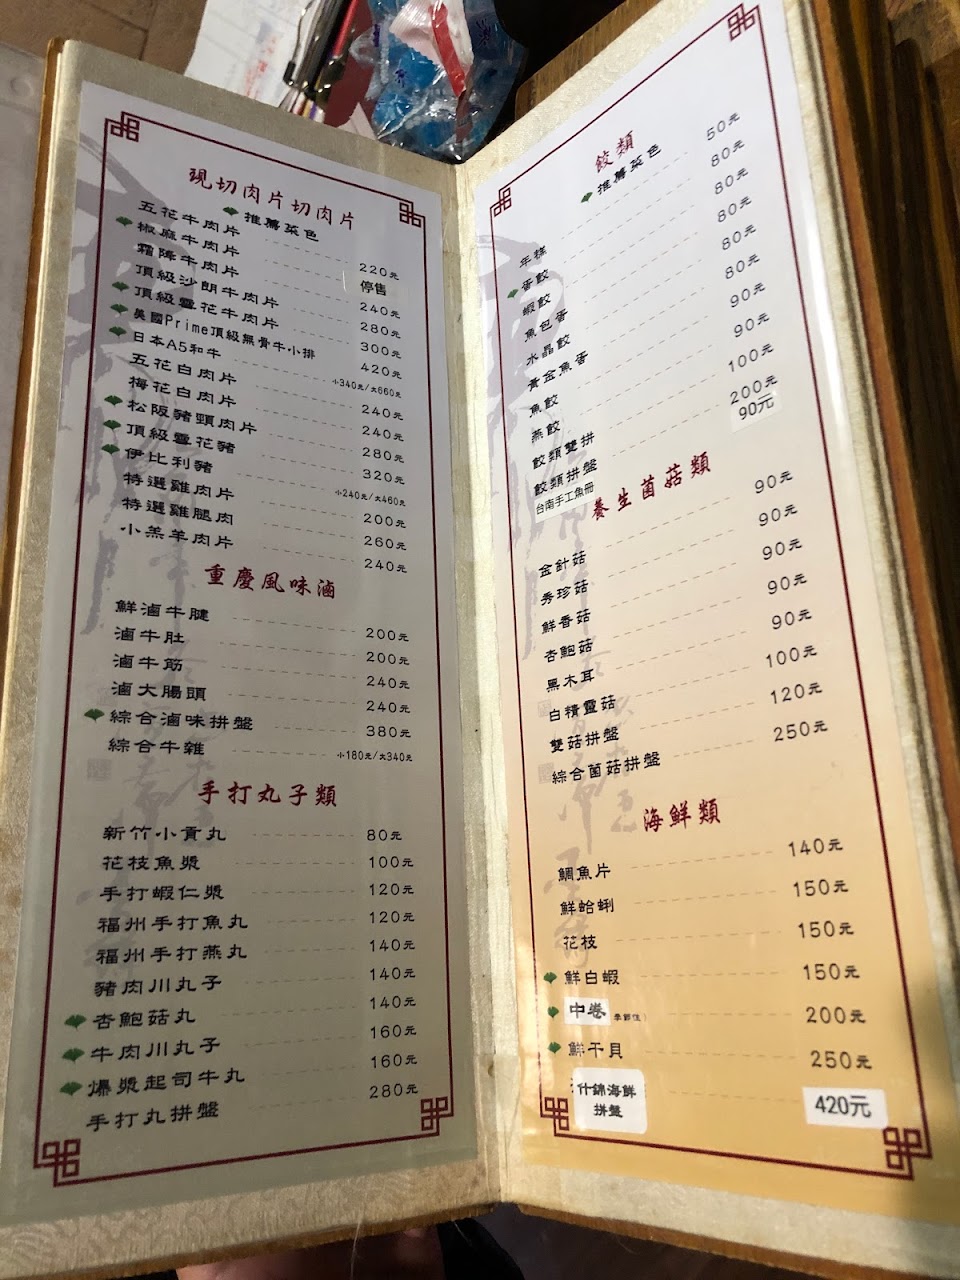 現切肉片切肉片
推薦菜色
五花牛肉片 220元
椒麻牛肉片 停售
霜降牛肉片 240元
頂級沙朗牛肉片 280元
頂級雪花牛肉片 300元
美國Prime頂級無骨牛小排 420元
日本A5和牛 小340元/大660元
五花白肉片 240元
梅花白肉片 240元
松阪豬頸肉片 280元
頂級雪花豬 320元
伊比利豬 小240元/大460元
特選雞肉片 200元
特選雞腿肉 260元
小羔羊肉片 240元
重慶風味滷
鮮滷牛腱 200元
滷牛肚 200元
滷牛筋 240元
滷大腸頭 240元
綜合滷味拼盤 380元
綜合牛雜 小180元/大340元
手打丸子類
新竹小貢丸 80元
花枝魚漿 100元
手打蝦仁漿 120元
福州手打魚丸 120元
福州手打燕丸 140元
豬肉川丸子 140元
杏鮑菇丸 140元
牛肉川丸子 160元
爆漿起司牛丸 160元
手打丸拼盤 280元
餃類
推薦菜色
年糕 50元
蛋餃 80元
蝦餃 80元
魚包蛋 80元
水晶餃 80元
黃金魚蛋 80元
魚餃 90元
燕餃 90元
餃類雙拼 100元
餃類拼盤 200元
台南手工魚冊 90元
養生菌菇類
金針菇 90元
秀珍菇 90元
鮮香菇 90元
杏鮑菇 90元
黑木耳 90元
白精靈菇 100元
雙菇拼盤 120元
綜合菌菇拼盤 250元
海鮮類
鯛魚片 140元
鮮蛤蜊 150元
花枝 150元
鮮白蝦 150元
中卷 200元
鮮干貝 250元
什錦海鮮
拼盤 420元